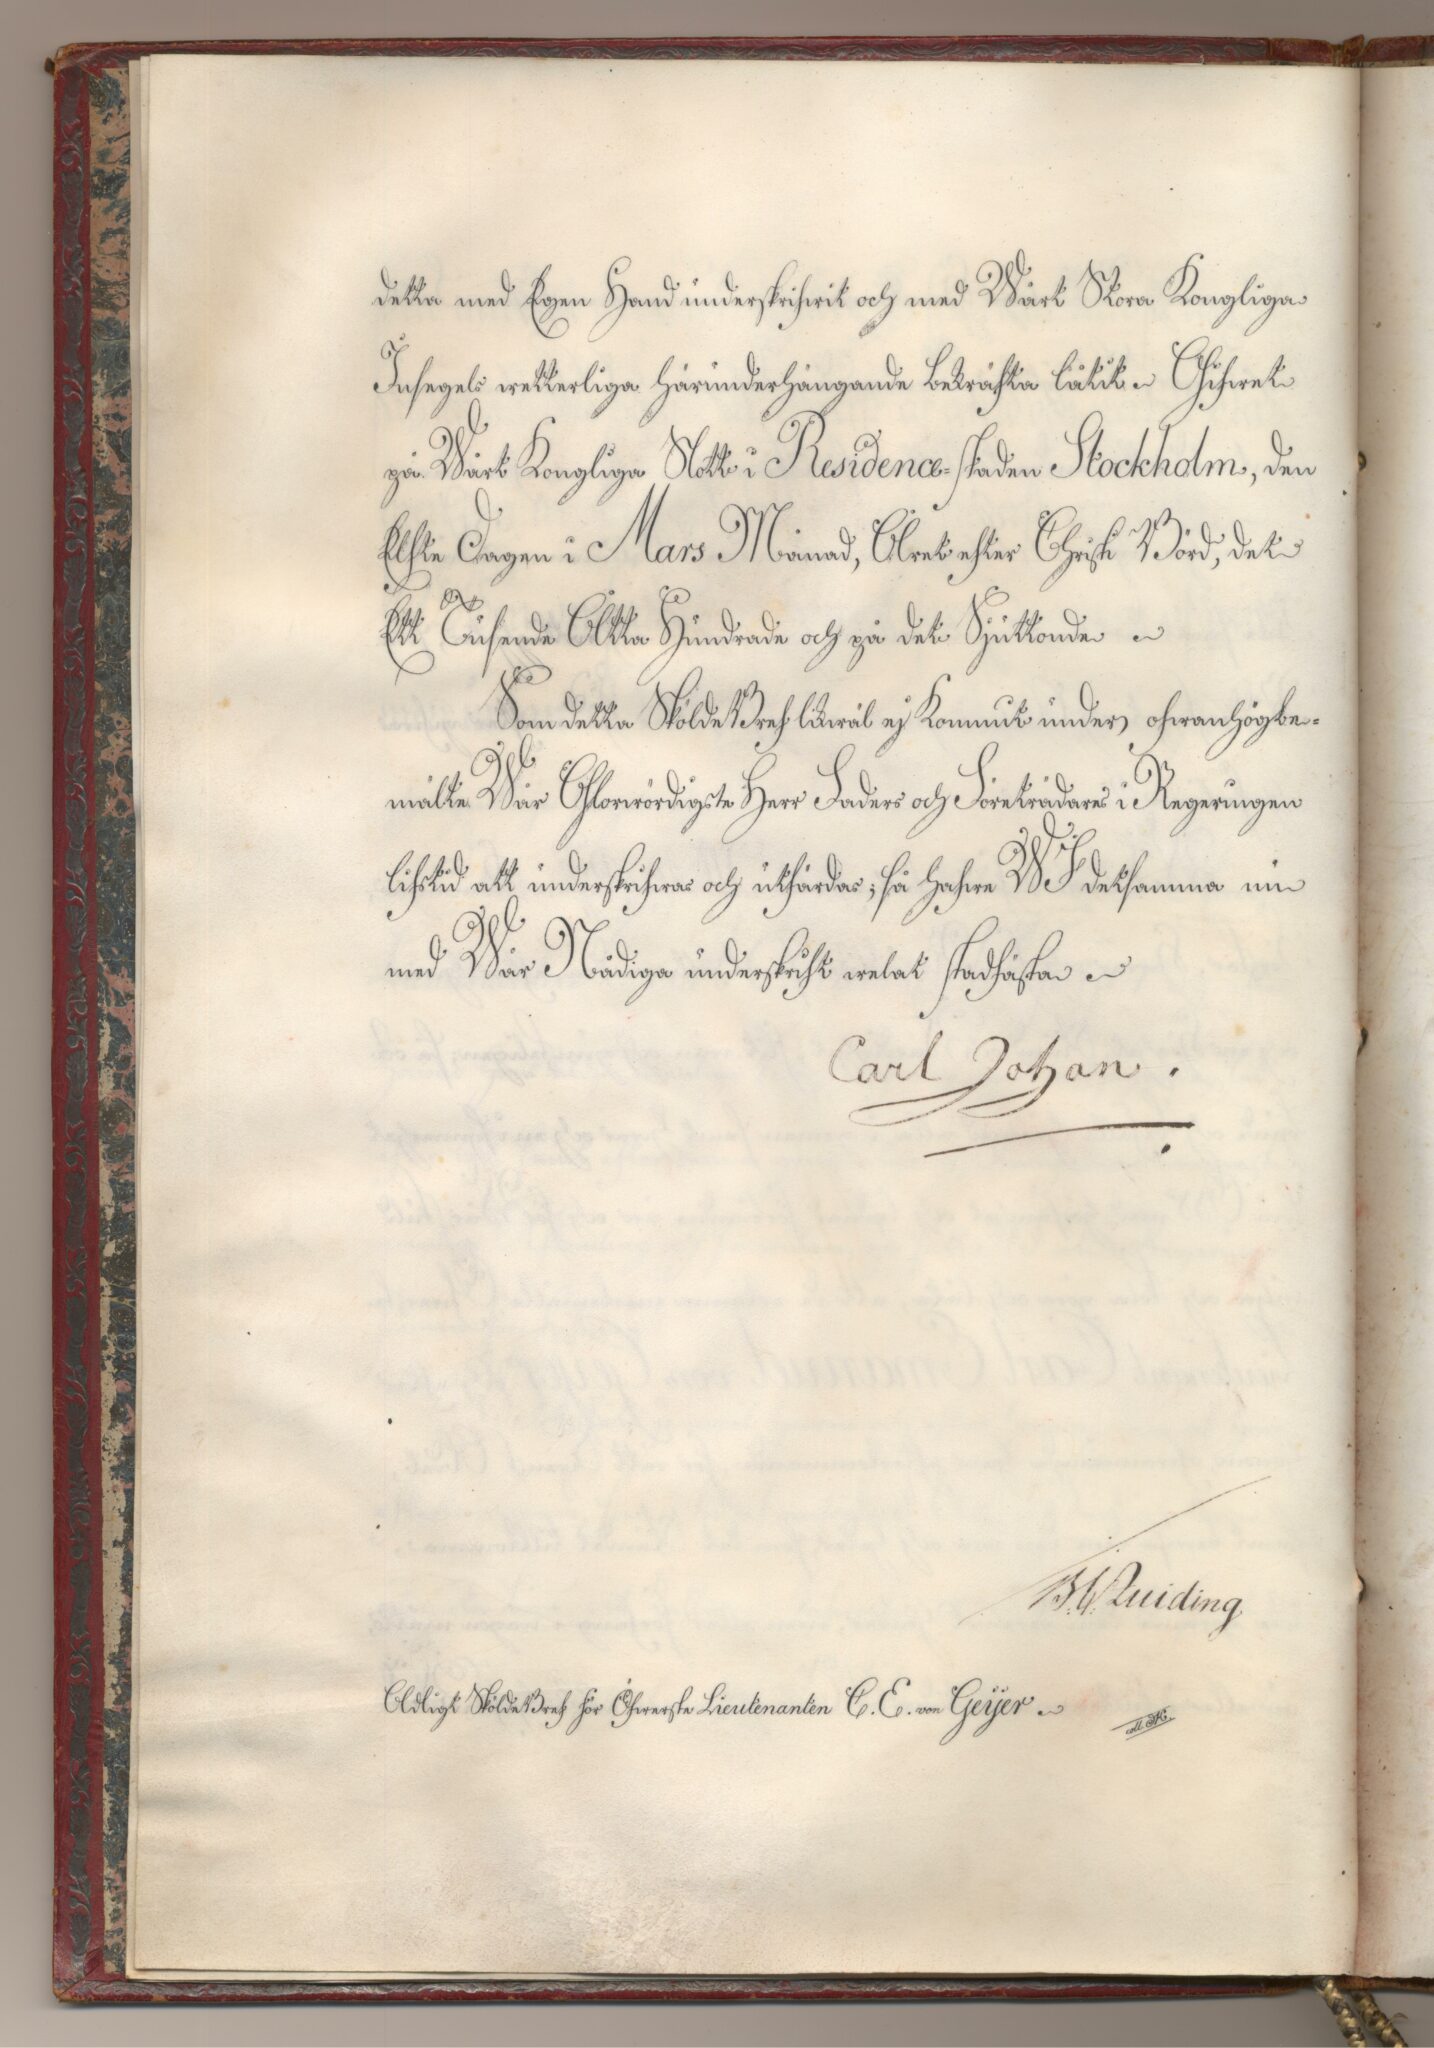 detta med Egen Hand underskrifwit och med Wårt Stora Kongliga
Insegels wetterliga härunderhängande bekräfta låtit. Gifwet
på Wårt Kongliga Slott i Residence-staden Stockholm, den
Elfte Dagen i Mars Månad, Året efter Christi Börd, det
Ett Tusende Åtta Hundrade och på det Sjuttonde
Som detta SköldeBref likwäl ej kommit under ofwanhögbe-
mälte Wår Glorwördigste Herr Faders och Företrädares i Regeringen
lifstid att underskrifwas och utfärdas; så hafwe WJ detsamma nu
med Wår Nådiga underskrift welat stadfästa
Carl Johan.
Quiding
Adligt SköldeBref för Öfwerste Lieutenanten C. E. von Geijer